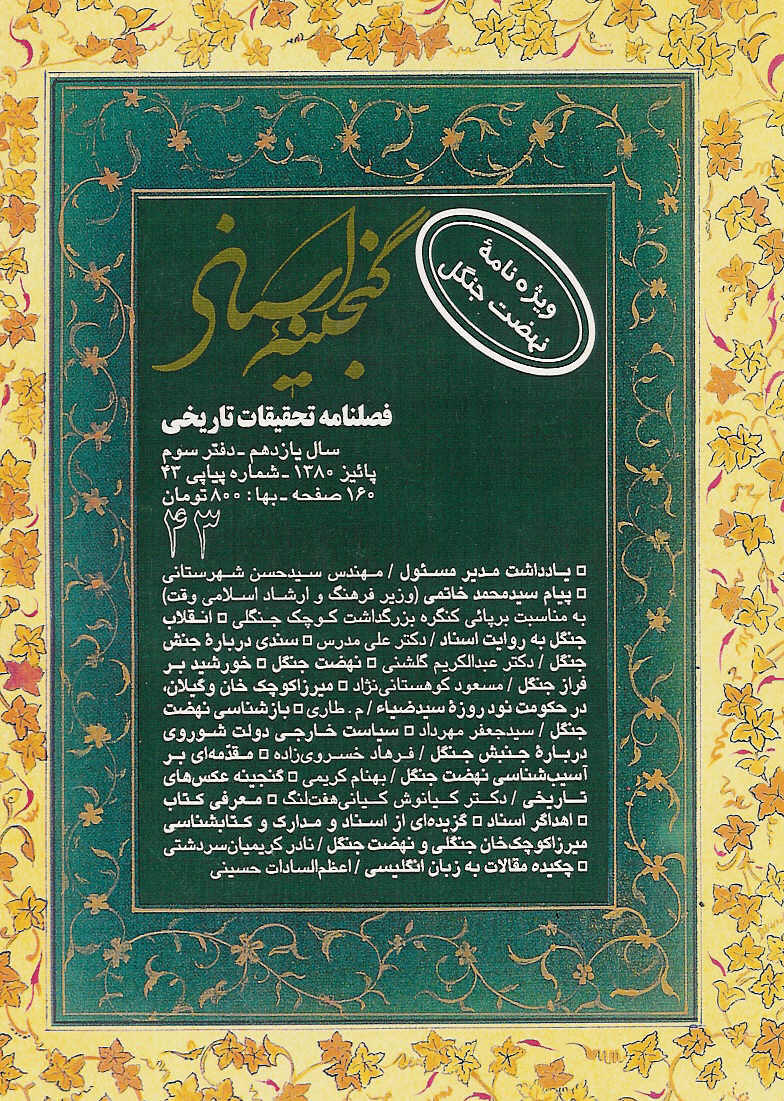 ویژه‌نامهٔ
نهضت جنگل
گنجینهٔ اسناد
فصلنامه تحقیقات تاریخی
سال یازدهم ـ دفتر سوم
پائیز ۱۳۸۰ ـ شماره پیاپی ۴۳
۱۶۰ صفحه ـ بها: ۸۰۰ تومان
۴۳
▫ یـادداشت مدیر مسـئول / مـهندس سیدحسن شـهرستانی
▫ پیام سیدمحمد خاتمی (وزیر فرهنگ و ارشاد اسلامی وقت)
به مناسبت برپائی کنگره بزرگداشت کوچک جنگلی ▫ انـقلاب
جنگل به روایت اسناد / دکتر علی مدرس ▫ سندی دربارهٔ جنش
جنگل / دکتر عبدالکریم گلشنی ▫ نهضت جنگل ▫ خورشید بـر
فراز جنگل / مسعود کوهستانی‌نژاد ▫ میرزاکوچک خان وگیلان،
در حکومت نود روزهٔ سیدضیاء / م . طاری ▫ بازشناسی نهضت
جنگل / سیدجعفر مهرداد ▫ سیاست خارجی دولت شوروی
دربارهٔ جنبش جنگل / فـرهاد خسـروی‌زاده ▫ مـقدّمه‌ای بـر
آسیب‌شناسی نهضت جنگل / بهنام کریمی ▫ گنجینه عکس‌های
تـاریخی / دکـتر کـیانوش کـیانی‌هفت‌لنگ ▫ مـعرفی کـتاب
▫ اهداگر اسناد ▫ گزیده‌ای از اسـناد و مدارک و کـتابشناسی
میرزاکوچک‌خان جنگلی و نهضت جنگل / نادر کریمیان‌سردشتی
▫ چکیده مقالات به زبان انگلیسی / اعظم‌السادات حسینی